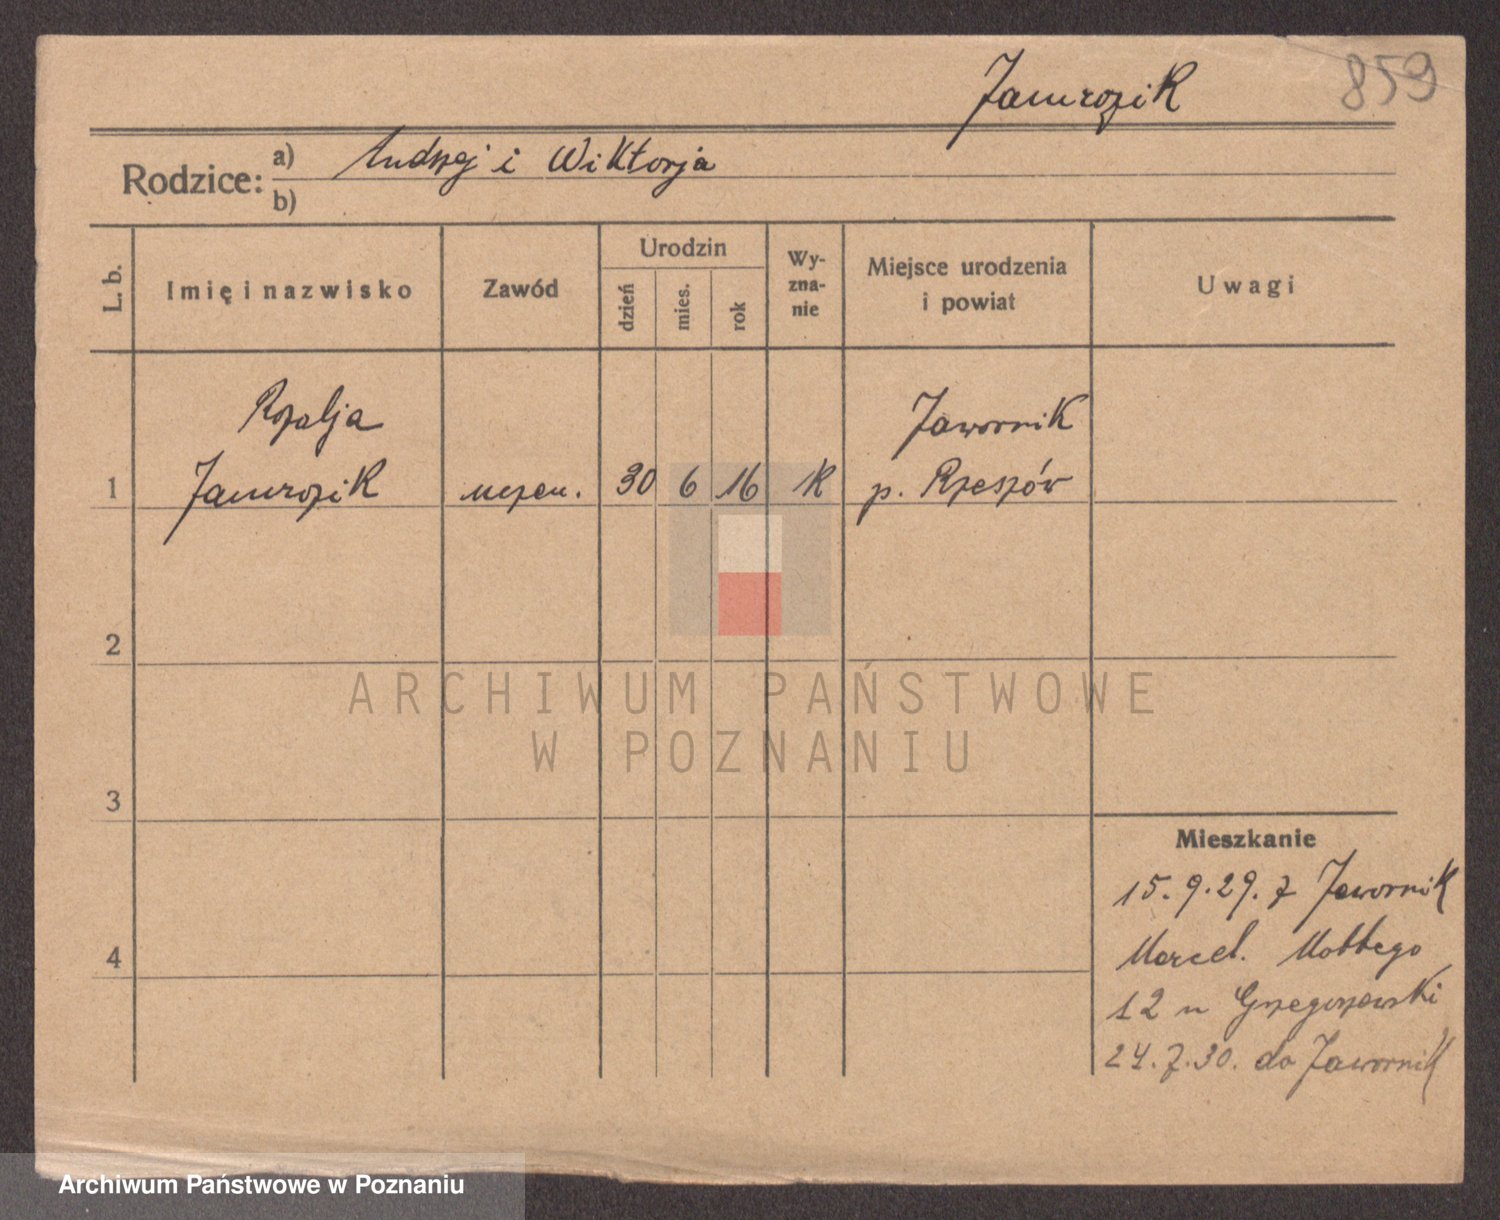 Jamrozik 859
Rodzice: a) Andrzej i Wiktorja
b)
L. b. Imię i nazwisko Zawód Urodzin dzień mies. rok Wyzna-nie Miejsce urodzenia i powiat Uwagi
Rozalja Jawornik
1 Jamrozik uczen. 30 6 16 K p. Rzeszów
2
ARCHIWUM PAŃSTWOWE
W POZNANIU
3
Mieszkanie
15.9.29. z Jawornik
4 Marcel. Mottego
12 u Grzegorzewski
24.7.30. do Jawornik
Archiwum Państwowe w Poznaniu